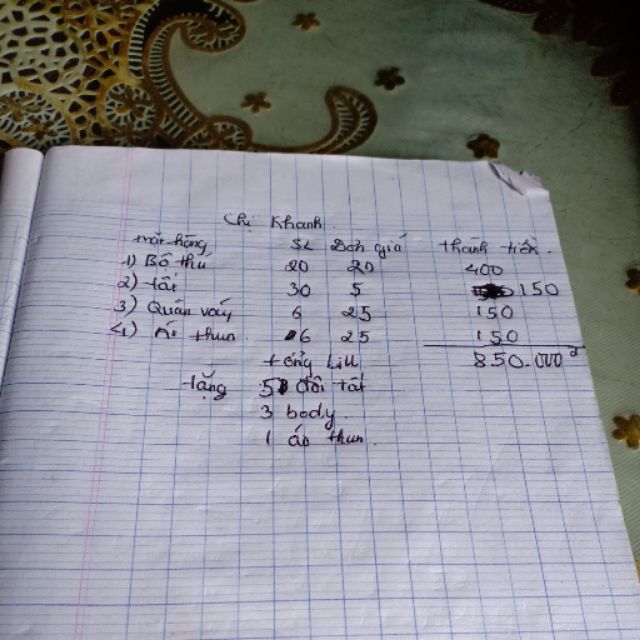 Chị Khanh
mặt hàng SL Đơn giá thành tiền
1) Bộ thu 20 20 400
2) tất 30 5 150
3) Quần váy 6 25 150
4) Áo thun 6 25 150
tổng 850.000đ
tặng 5 đôi tất
3 body.
1 áo thun.